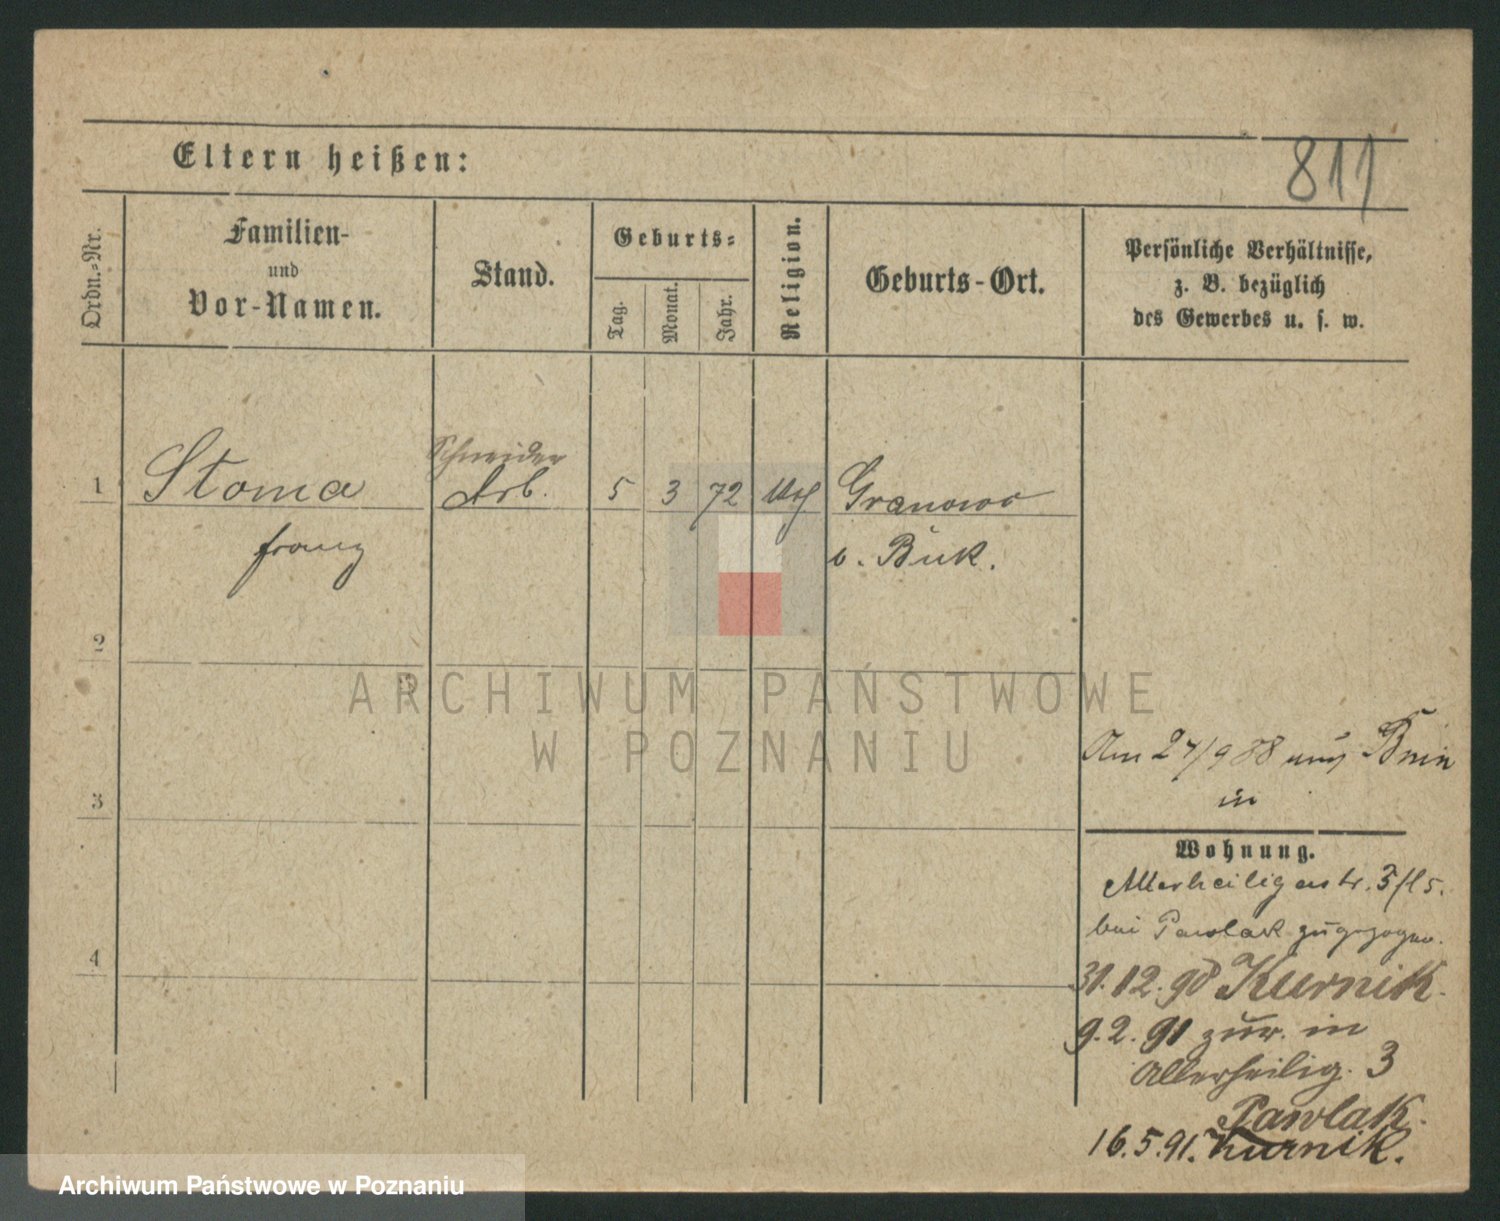 811
Eltern heißen:
Ordn.-Nr.
Familien-
und
Vor-Namen.
Stand.
Geburts-
Tag.
Monat.
Jahr.
Religion.
Geburts-Ort.
Persönliche Verhältnisse,
z. B. bezüglich
des Gewerbes u. s. w.
Schneider
1 Stoma Arb. 5 3 72 Granowo
Franz b. Buk.
2
3
4
ARCHIWUM PAŃSTWOWE
W POZNANIU
Am 27/9 88 aus Bnin
in
Wohnung.
Allerheiligenstr. 3/15.
bei Pawlak zugezogen.
31.12.90 Kurnik.
9.2.91 zur. in
Allerheilig. 3
Pawlak.
16.5.91. Kurnik.
Archiwum Państwowe w Poznaniu